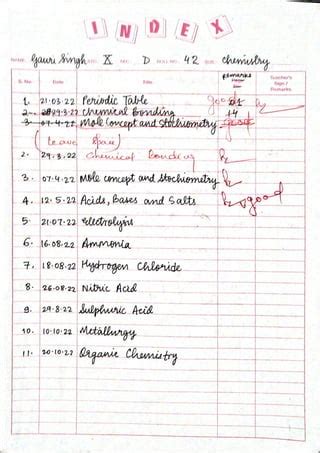 INDEX
NAME: Gauri Singh STD.: X SEC.: D ROLL NO.: 42 SUB.: Chemistry
S. No. Date Title Remarks Teacher's Sign / Remarks
1. 21.03.22 Periodic Table good 01
2. 29.3.22 Chemical Bonding 14
3. 07.4.22 Mole Concept and Stochiometry good
(Leave Space)
2. 29.3.22 Chemical Bonding
3. 07.4.22 Mole concept and Stochiometry
4. 12.5.22 Acids, Bases and Salts v good
5. 21.07.22 Electrolysis
6. 16.08.22 Ammonia
7. 18.08.22 Hydrogen Chloride
8. 26.08.22 Nitric Acid
9. 29.8.22 Sulphuric Acid
10. 10.10.22 Metallurgy
11. 20.10.22 Organic Chemistry